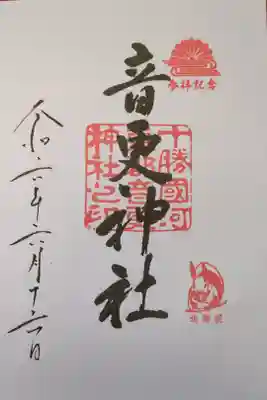 參拝記念
音更神社
十勝國河
東郡音更
神社之印
令和六年六月十六日